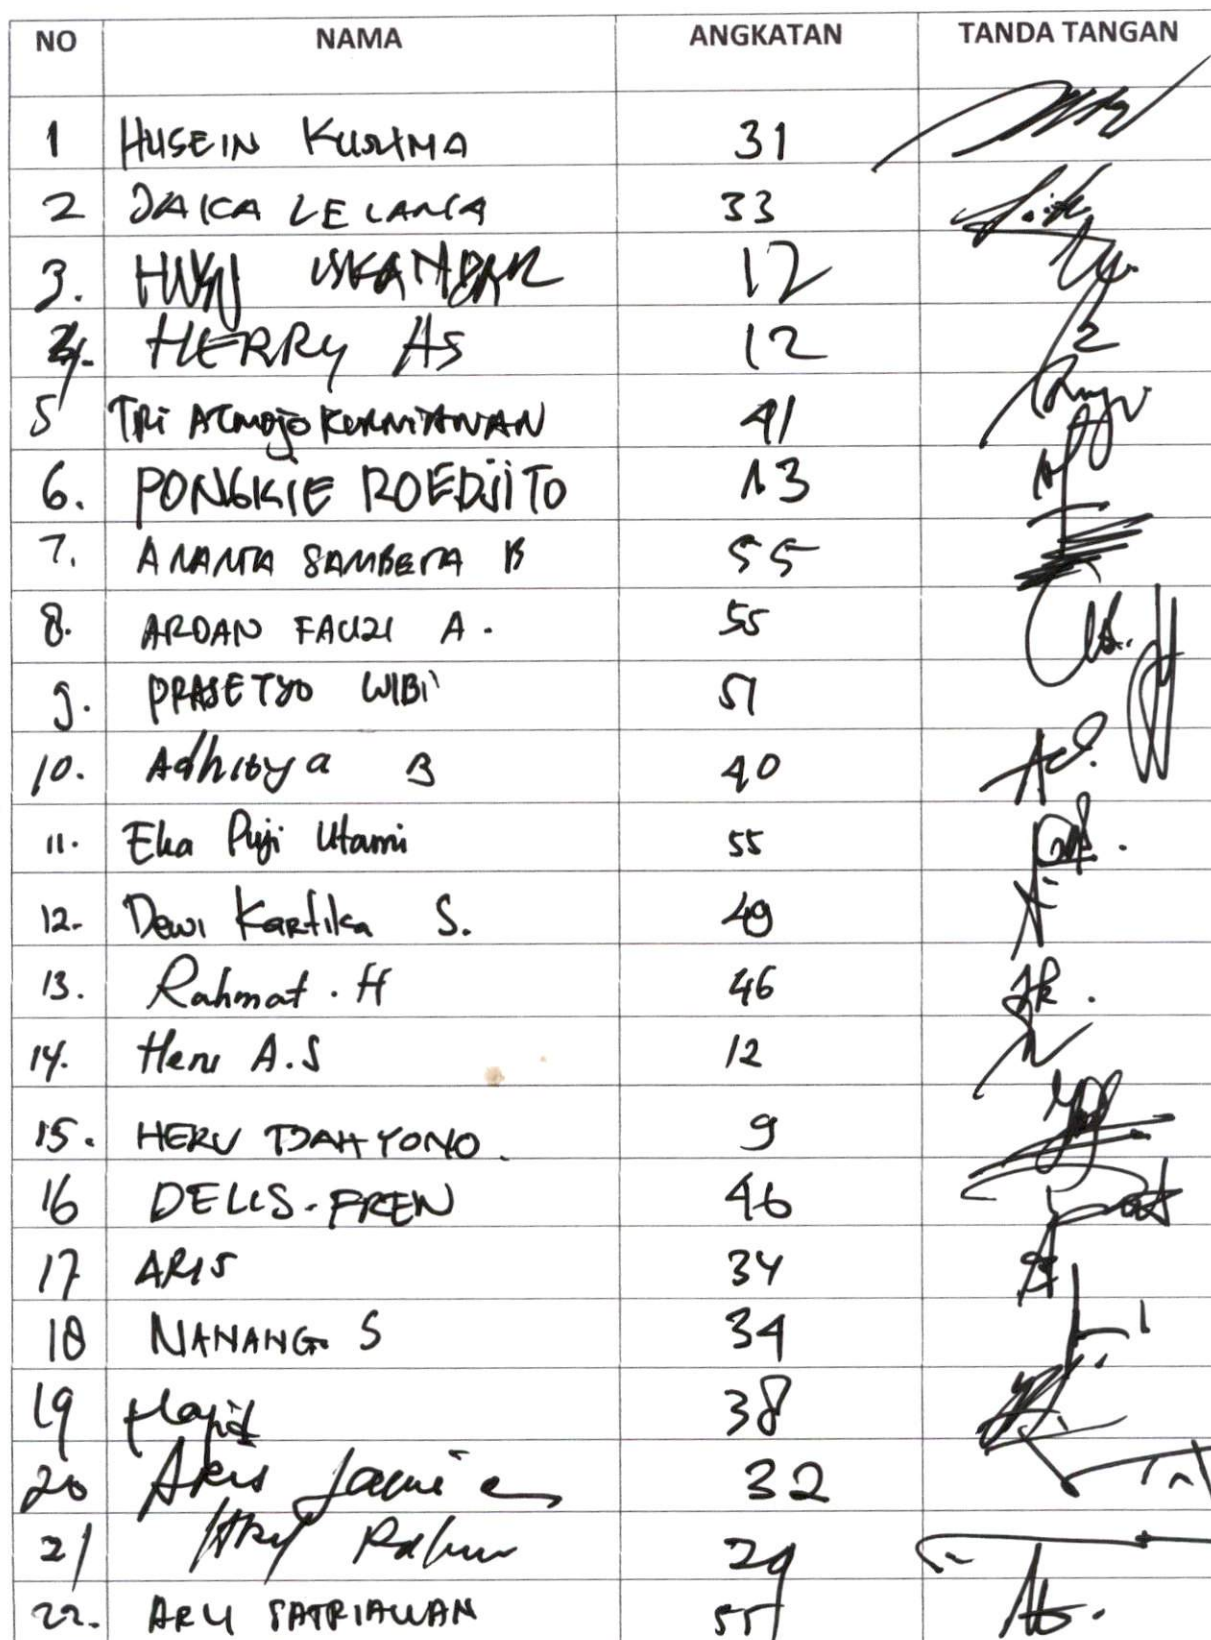 NO NAMA ANGKATAN TANDA TANGAN
1 HUSEIN KUSUMA 31
2 JAKA LELANA 33
3. ISKANDAR 12
4. HERRY AS 12
5 TRI ATMOJO KURNIAWAN 41
6. PONGKIE ROEDJITO 13
7. ANANTA SAMBERA B 55
8. ARDAN FAUZI A. 55
9. PRASETYO WIBI 51
10. Adhitya B 40
11. Eka Puji Utami 55
12. Dewi Kartika S. 49
13. Rahmat. H 46
14. Heru A.S 12
15. HERU TJAHYONO. 9
16 DELIS. FREN 46
17 ARIS 34
18 NANANG S 34
19 38
20 Aris 32
21 29
22. ARY SATRIAWAN 55